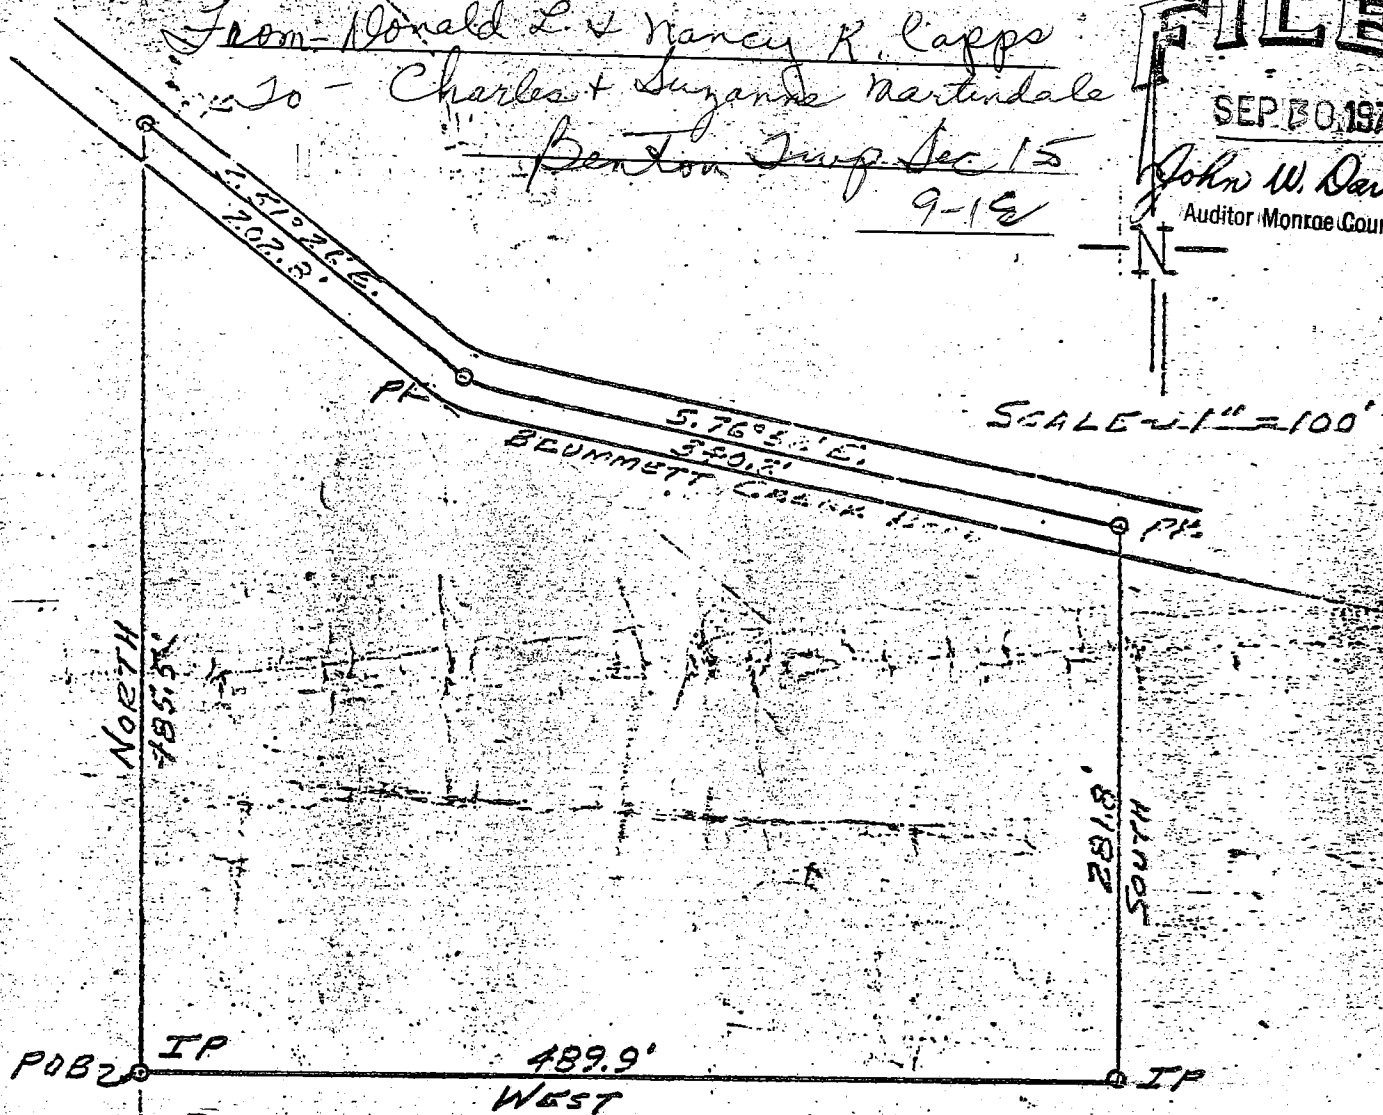 From - Donald L. & Nancy R. Capps
To - Charles & Suzanne Martindale
Benton Twp. Sec 15
9-1E
FILE
SEP 30 197
John W. Dav
Auditor Monroe Coun
N
SCALE - 1" = 100'
PK
PK
NORTH
485.5'
SOUTH
POB
IP
489.9'
WEST
IP